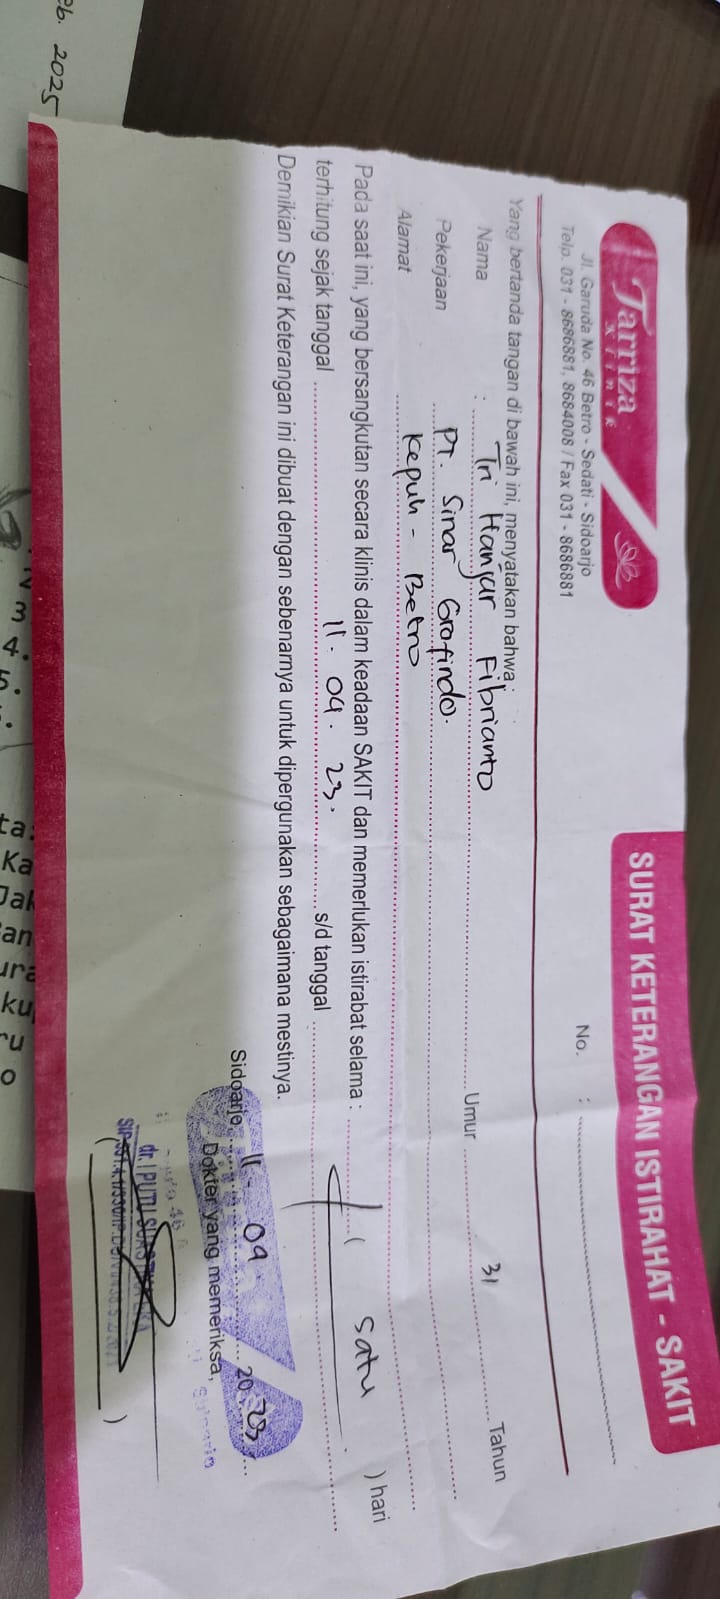 Tarriza
KLINIK
Jl. Garuda No. 46 Betro - Sedati - Sidoarjo
Telp. 031 - 8686881, 8684008 / Fax 031 - 8686881
SURAT KETERANGAN ISTIRAHAT - SAKIT
No. :
Yang bertanda tangan di bawah ini, menyatakan bahwa,
Nama : Tri Hanjar Fibrianto Umur 31 Tahun
Pekerjaan PT. Sinar Grafindo.
Alamat Kepuh - Betro
Pada saat ini, yang bersangkutan secara klinis dalam keadaan SAKIT dan memerlukan istirabat selama : 1 ( Satu ) hari
terhitung sejak tanggal 11. 09. 23. s/d tanggal
Demikian Surat Keterangan ini dibuat dengan sebenarnya untuk dipergunakan sebagaimana mestinya.
Sidoarjo, 11 - 09 - 2023
Dokter yang memeriksa,
Sidoarjo
dr. I PUTU
( )
2025
3
4.
5.
ta:
Ka
Jak
an
ura
ku
ru
o